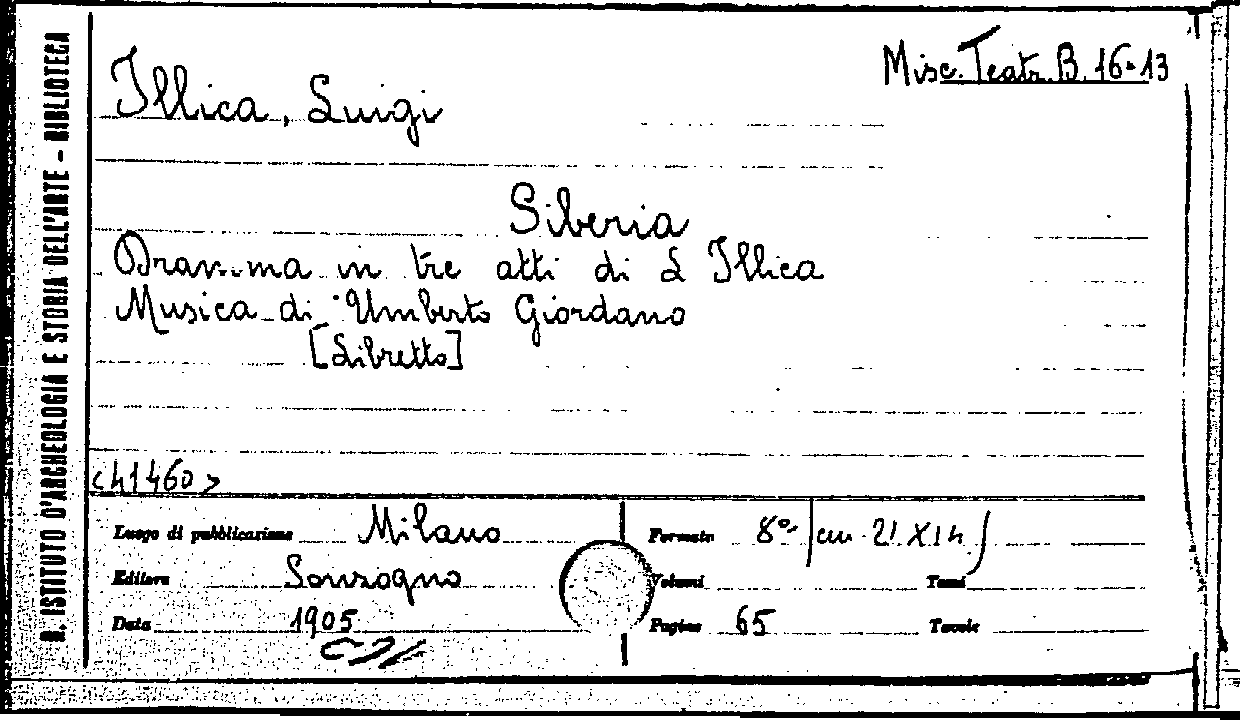 R. ISTITUTO D'ARCHEOLOGIA E STORIA DELL'ARTE - BIBLIOTECA
Misc. Teatr. B. 16-13
Illica, Luigi
Siberia
Dramma in tre atti di L Illica
Musica di Umberto Giordano
[Libretto]
<41460>
Luogo di pubblicazione Milano
Formato 8° cm 21 X 14
Editore Sonzogno
Volumi Tomi
Data 1905
Pagine 65 Tavole